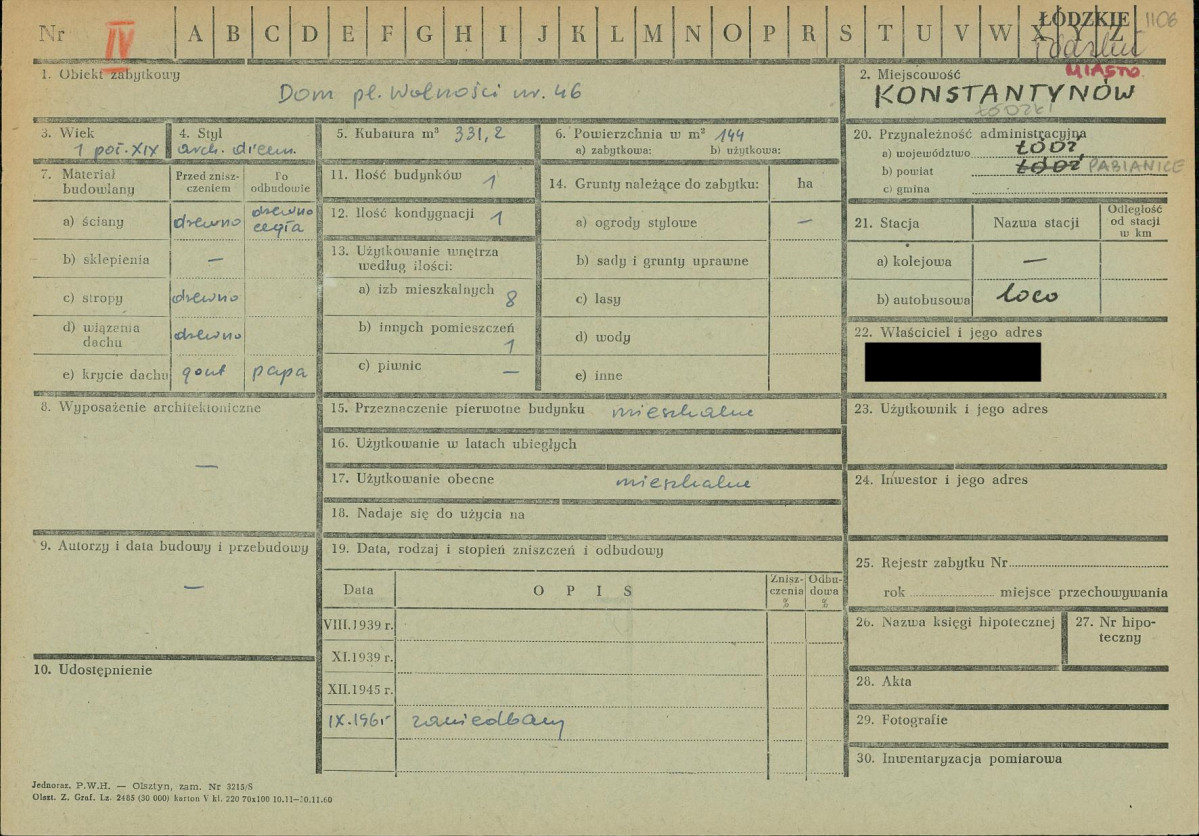 Nr IV A B C D E F G H I J K L M N O P R S T U V W X Y Z
ŁÓDZKIE 1106
MIASTO
1. Obiekt zabytkowy
Dom pl. Wolności nr. 46
2. Miejscowość
KONSTANTYNÓW
ŁÓDZKI
3. Wiek
1 poł. XIX
4. Styl
arch. drewn.
5. Kubatura m³ 331,2
6. Powierzchnia w m² 144
a) zabytkowa: b) użytkowa:
20. Przynależność administracyjna
a) województwo ŁÓDŹ
b) powiat ŁÓDŹ PABIANICE
c) gmina
7. Materiał budowlany
Przed zniszczeniem
Po odbudowie
a) ściany drewno drewno cegła
b) sklepienia —
c) stropy drewno
d) wiązenia dachu drewno
e) krycie dachu gont papa
11. Ilość budynków 1
12. Ilość kondygnacji 1
13. Użytkowanie wnętrza
według ilości:
a) izb mieszkalnych 8
b) innych pomieszczeń 1
c) piwnic —
14. Grunty należące do zabytku: ha
a) ogrody stylowe —
b) sady i grunty uprawne
c) lasy
d) wody
e) inne
21. Stacja Nazwa stacji Odległość od stacji w km
a) kolejowa —
b) autobusowa loco
22. Właściciel i jego adres
8. Wyposażenie architektoniczne
—
15. Przeznaczenie pierwotne budynku mieszkalne
16. Użytkowanie w latach ubiegłych
17. Użytkowanie obecne mieszkalne
18. Nadaje się do użycia na
23. Użytkownik i jego adres
24. Inwestor i jego adres
9. Autorzy i data budowy i przebudowy
—
10. Udostępnienie
19. Data, rodzaj i stopień zniszczeń i odbudowy
Data OPIS Zniszczenia % Odbudowa %
VIII.1939 r.
XI.1939 r.
XII.1945 r.
IX.1965 zaniedbany
25. Rejestr zabytku Nr
rok miejsce przechowywania
26. Nazwa księgi hipotecznej
27. Nr hipoteczny
28. Akta
29. Fotografie
30. Inwentaryzacja pomiarowa
Jednoraz. P.W.H. — Olsztyn, zam. Nr 3215/S
Olszt. Z. Graf. Lz. 2465 (30 000) karton V kl. 220 70x100 10.11—30.11.60